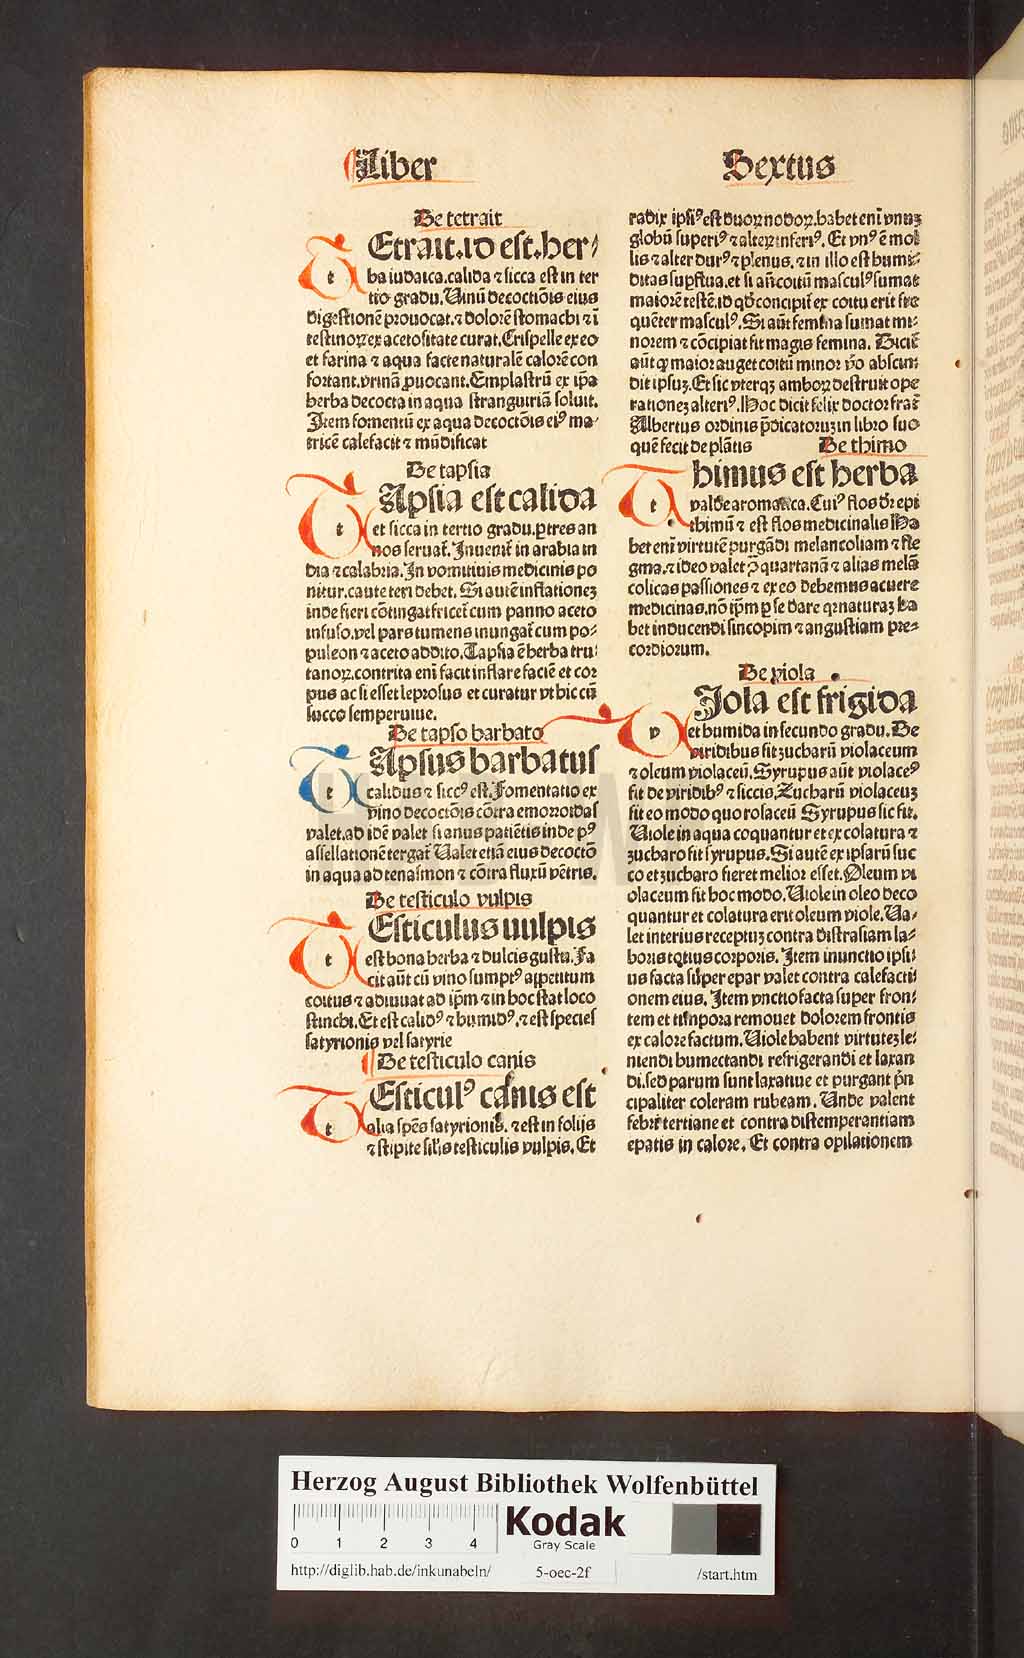 Liber
De tetrait
TEtrait.id est.her⸗
ba iudaica.calida ⁊ sicca est in ter
tio gradu.Uinū decoctiōis eius
digestionē prouocat.⁊ dolorē stomachi ⁊ ī
testinoꝝ ex acetositate curat.Crispelle ex eo
et farina ⁊ aqua facte naturalē calorē con
fortant.vrinā ꝓuocant.Emplastrū ex ip̄a
herba decocta in aqua stranguiriā soluit.
Item fomentū ex aqua decoctōis eiꝰ ma⸗
tricē calefacit ⁊ mūdificat
De tapsia
TApsia est calida
et sicca in tertio gradu.ꝑ tres an
nos seruat̄.Inuenit̄ in arabia in
dia ⁊ calabria.In vomitiuis medicinis po
nitur.caute teri debet. Si autē inflationeꝫ
inde fieri cōtingat fricet̄ cum panno aceto
infuso.vel pars tumens inungat̄ cum po⸗
puleon ⁊ aceto addito.Tapsia ē herba tru⸗
tanoꝝ.contrita eni facit inflare faciē et cor
pus ac si esset leprosus et curatur vt hic cū
succo semperuiue.
De tapso barbato
TApsus barbatus
calidus ⁊ siccꝰ est.Fomentatio ex
vino decoctōis cōtra emorroidas
valet.ad idē valet si anus patiētis inde pꝰ
assellationē tergat̄ Ualet etiā eius decoctō
in aqua ad tenasmon ⁊ cōtra fluxū vētris.
De testiculo vulpis
TEsticulus uulpis
est bona herba ⁊ dulcis gustu.Fa
cit aūt cū vino sumptꝰ appetitum
coitus ⁊ adiuuat ad ip̄m ⁊ in hoc stat loco
stinchi.Et est calidꝰ ⁊ humidꝰ.⁊ est species
satyrionis vel satyrie
De testiculo canis
TEsticulꝰ canis est
alia spēs satyrionis. ⁊ est in folijs
⁊ stipite sil̄is testiculis vulpis. Et
Sextus
radix ipsiꝰ est duoꝝ nodoꝝ.habet eni vnuꝫ
globū superiꝰ ⁊ alteꝝ inferiꝰ. Et vnꝰ ē mol
lis ⁊ alter durꝰ ⁊ plenus. ⁊ in illo est humi⸗
ditas suꝑflua.et si an̄ coitū masculꝰ sumat
maiorē testē.id qd̄ concipit̄ ex coitu erit fre
quēter masculꝰ.Si aūt femina sumat mi⸗
norem ⁊ cōcipiat fit magis femina. Dicit̄
aūt ꝙ maior auget coitū minor v̄o abscin⸗
dit ipsuꝫ.Et sic vterqꝫ amboꝝ destruit ope
rationeꝫ alteriꝰ.Hoc dicit felix doctor frat̄
Albertus ordinis p̄dicatoruꝫ in libro suo
quē fecit de plātis
De thimo
THimus est herba
valde aromatica.Cuiꝰ flos dr̄ epi
thimū ⁊ est flos medicinalis Ha
bet eni virtutē purgādi melancoliam ⁊ fle
gma.⁊ ideo valet ꝯ quartanā ⁊ alias melā
colicas passiones ⁊ ex eo debemus acuere
medicinas.nō ip̄m ꝑ se dare qꝛ naturaꝫ ha
bet inducendi sincopim ⁊ angustiam pre⸗
cordiorum.
De viola
VIola est frigida
et humida in secundo gradu. De
viridibus fit zucharū violaceum
⁊ oleum violaceū.Syrupus aūt violaceꝰ
fit de viridibꝰ ⁊ siccis.Zucharū violaceuꝫ
fit eo modo quo rosaceū Syrupus sic fit.
Uiole in aqua coquantur et ex colatura ⁊
zucharo fit syrupus.Si autē ex ipsarū suc
co et zucharo fieret melior esset.Oleum vi
olaceum fit hoc modo.Uiole in oleo deco
quantur et colatura erit oleum viole.Ua⸗
let interius receptuꝫ contra distrasiam la⸗
boris totius corporis. Item inunctio ipsi⸗
us facta super epar valet contra calefacti
onem eius. Item vnctio facta super fron⸗
tem et timpora remouet dolorem frontis
ex calore factum.Uiole habent virtuteꝫ le⸗
niendi humectandi refrigerandi et laxan
di.sed parum sunt laxatiue et purgant p̄n
cipaliter coleram rubeam. Unde valent
febri tertiane et contra distemperantiam
epatis in calore. Et contra opilationem
Herzog August Bibliothek Wolfenbüttel
0 1 2 3 4
Kodak
Gray Scale
http://diglib.hab.de/inkunabeln/ 5-oec-2f /start.htm